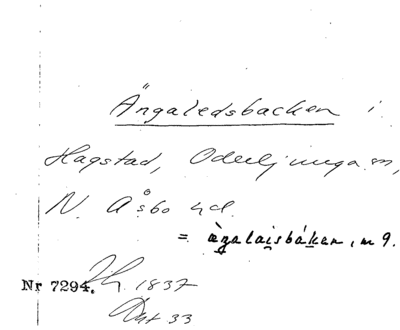 Ängaledsbacken i
Hagstad, Oderljunga sn,
N. Åsbo hd.
= ägalaisbáken, m 9.
Nr 7294. 1837
33